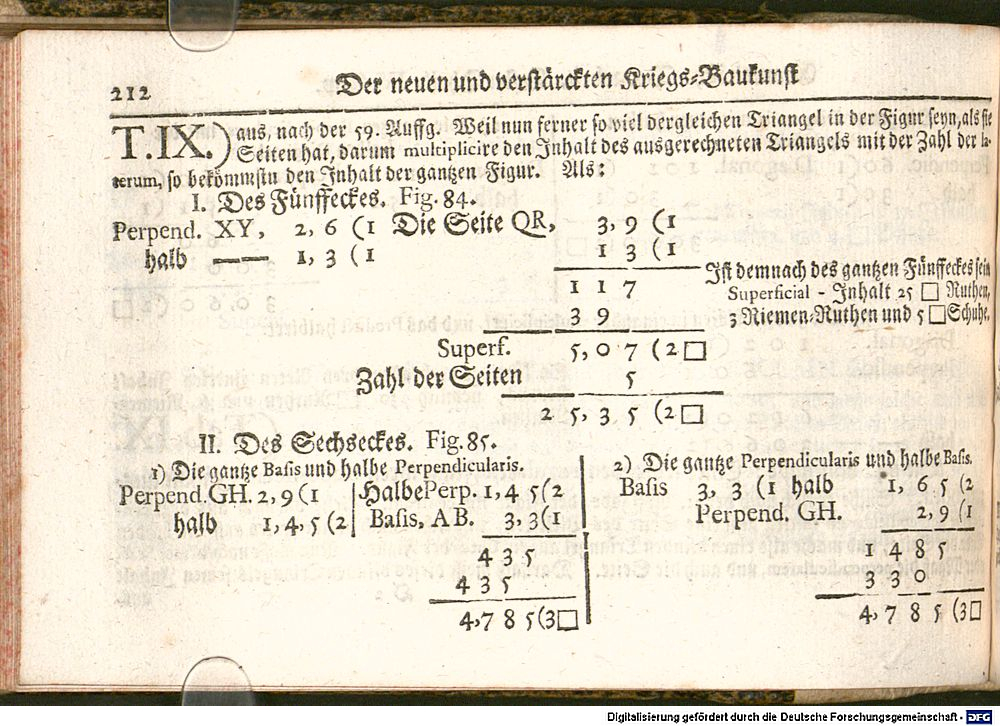 212 Der neuen und verstärckten Kriegs-Baukunst
T.IX.) aus, nach der 59. Auffg. Weil nun ferner so viel dergleichen Triangel in der Figur seyn, als sie
Seiten hat, darum multiplicire den Inhalt des ausgerechneten Triangels mit der Zahl der la-
terum, so bekömmstu den Inhalt der gantzen Figur. Als:
I. Des Fünffeckes. Fig. 84.
Perpend. XY, 2, 6 (1 Die Seite QR, 3, 9 (1
halb —— 1, 3 (1 1 3 (1
1 1 7
3 9
Superf. 5, 0 7 (2□
Zahl der Seiten 5
2 5, 3 5 (2□
Ist demnach des gantzen Fünffeckes sein
Superficial - Inhalt 25 □ Ruthen,
3 Riemen-Ruthen und 5 □Schuhe.
II. Des Sechseckes. Fig. 85.
1) Die gantze Basis und halbe Perpendicularis.
Perpend. GH. 2, 9 (1 Halbe Perp. 1, 4 5 (2
halb 1, 4, 5 (2 Basis, AB. 3, 3 (1
4 3 5
4 3 5
4, 7 8 5 (3□
2) Die gantze Perpendicularis und halbe Basis.
Basis 3, 3 (1 halb 1, 6 5 (2
Perpend. GH. 2, 9 (1
1 4 8 5
3 3 0
4, 7 8 5 (3□
Digitalisierung gefördert durch die Deutsche Forschungsgemeinschaft - DFG